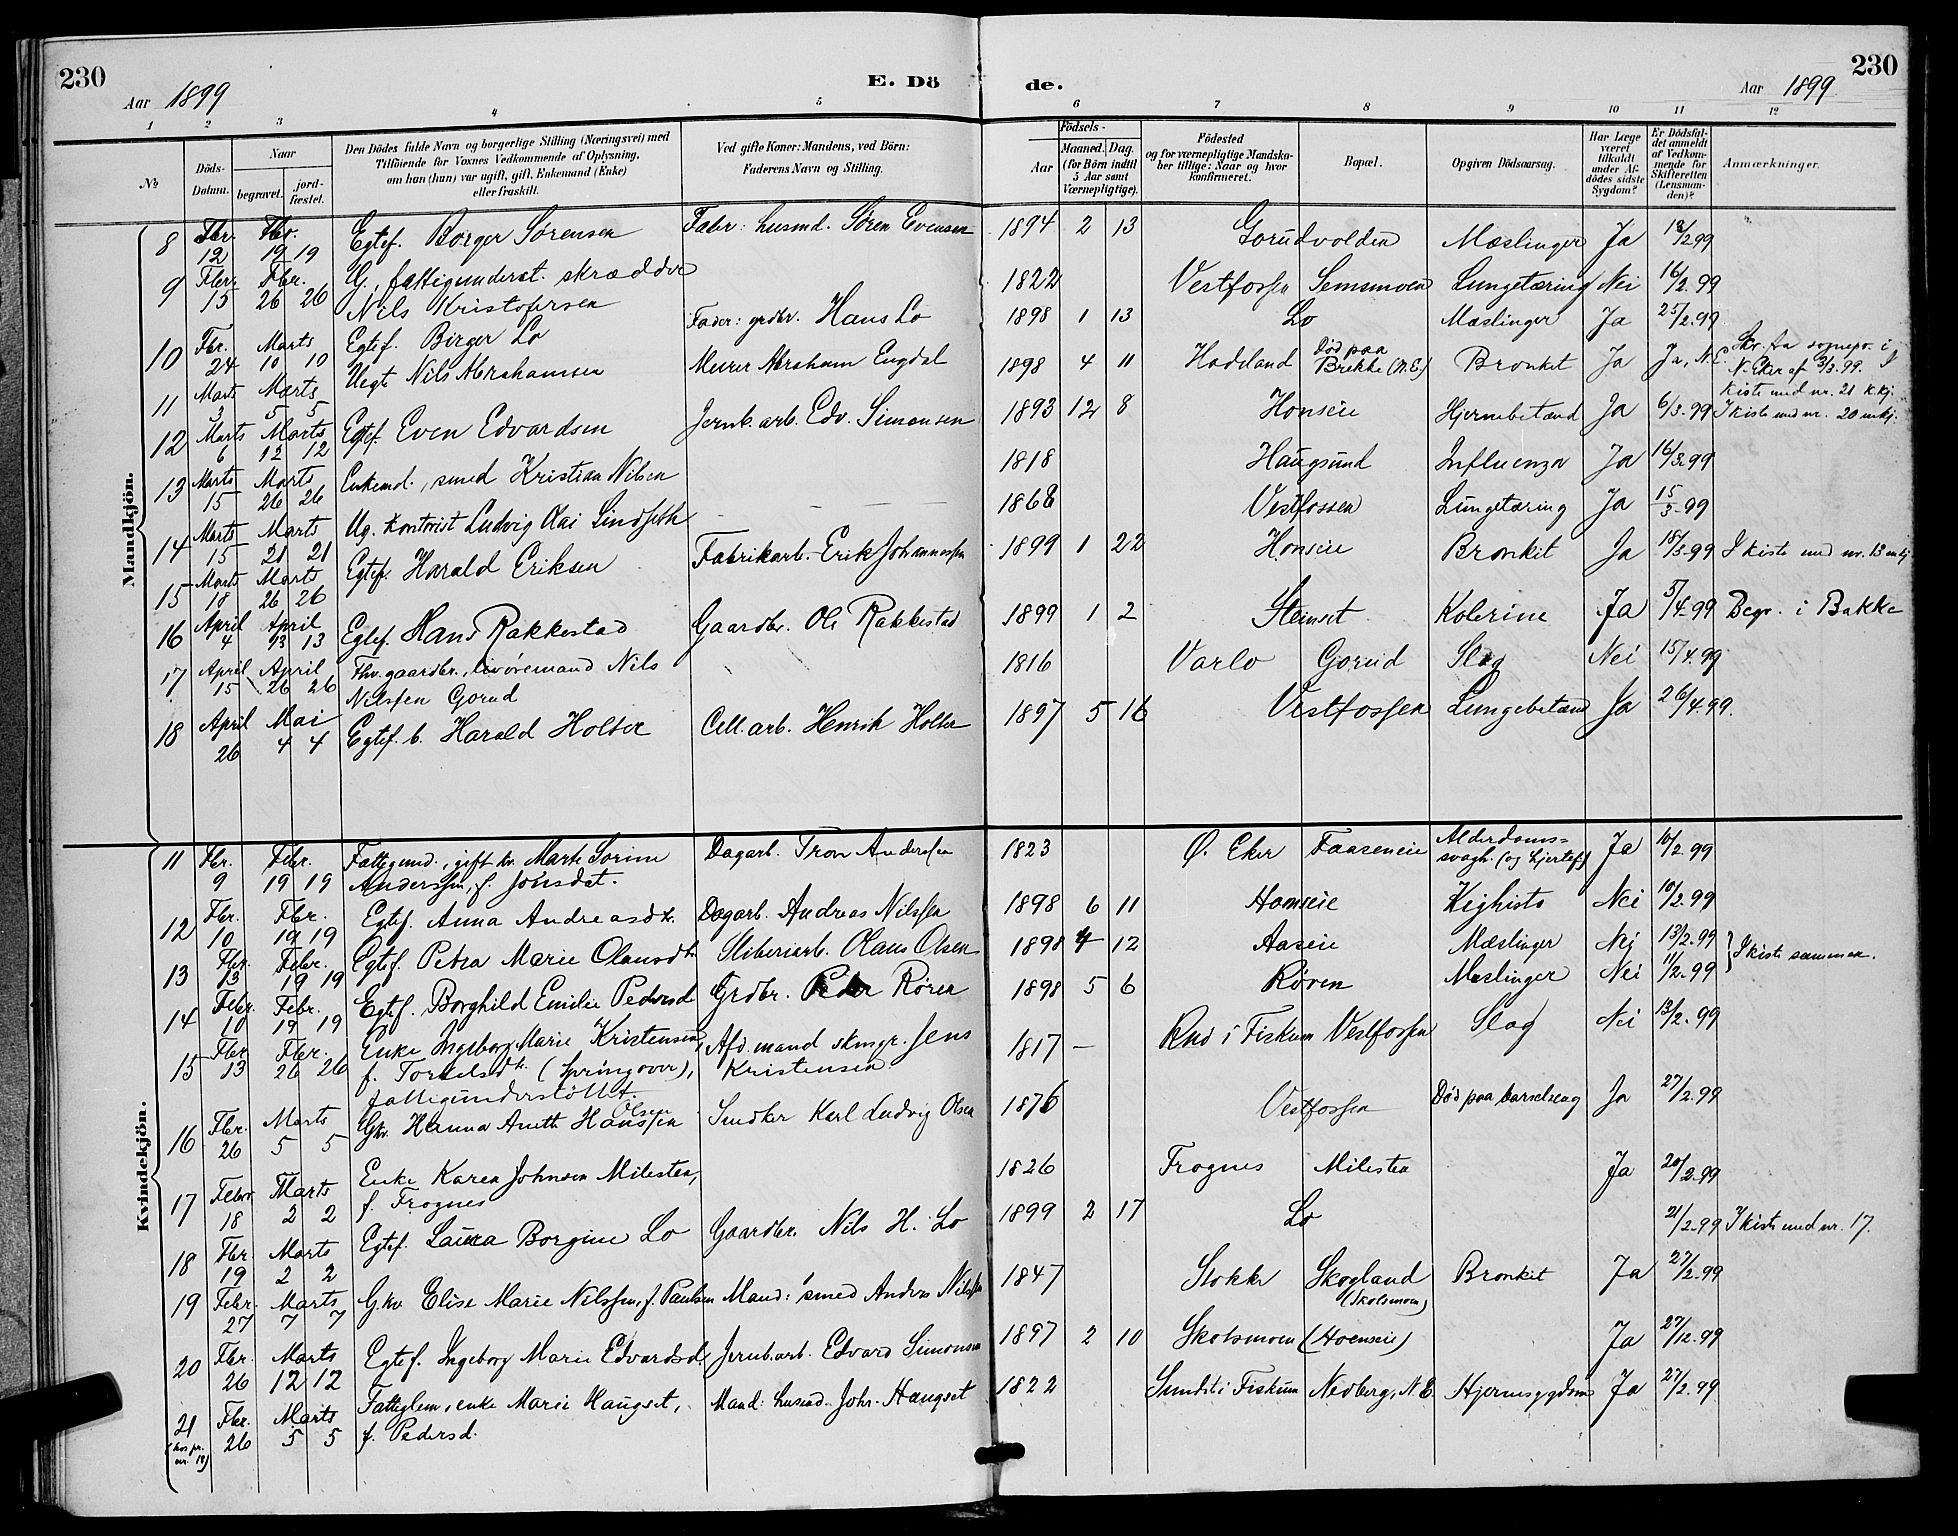 230
Aar 1899
E. Dö
de.
Aar 1899
230
1 2 3 4 5 6 7 8 9 10 11 12
No
Döds-Datum.
Naar
begravet.
jord-fæstet.
Den Dödes fulde Navn og borgerlige Stilling (Næringsvei) med
Tilföiende for Voxnes Vedkommende af Oplysning,
om han (hun) var ugift, gift, Enkemand (Enke)
eller fraskilt.
Ved gifte Koner: Mandens, ved Börn:
Faderens Navn og Stilling.
Födsels-
Aar
Maaned. Dag.
(for Börn indtil
5 Aar samt
Værnepligtige).
Födested
og for værnepligtige Mandska-
ber tillige: Naar og hvor
konfirmeret.
Bopæl.
Opgiven Dödsaarsag.
Har Læge
været
tilkaldt
under Af-
dödes sidste
Sygdom?
Er Dödsfal-
det anmeldt
af Vedkom-
mende for
Skifteretten
(Lensman-
den)?
Anmærkninger.
Mandkjön.
8 Fbr. 12 Fbr. 19 19 Egtef. Borger Sørensen Fader: husmd. Søren Evensen 1894 2 13 Gorudvolden Mæslinger Ja 18/2 99
9 Fbr. 15 Fbr. 26 26 G., fattigunderst. skrædder
Nils Kristofersen 1822 Vestfossen Semsmoen Lungetæring Nei 16/2 99
10 Fbr. 24 Marts 10 10 Egtef. Birger Lo Fader: grdbr. Hans Lo 1898 1 13 Lo Mæslinger Ja 25/2 99
11 Marts 3 Marts 5 5 Uegt. Nils Abrahamsen Murer Abraham Engdal 1898 4 11 Hadeland Død paa
Brekke (N.E.) Bronkit Ja Ja, N.E. Skr. fra sognepr. i
N. Eker af 3/3 99. I
kiste med nr. 21 k.kj.
12 Marts 6 Marts 12 12 Egtef. Even Edvardsen Jernb. arb. Edv. Simonsen 1893 12 8 Honseie Hjernebetænd Ja 6/3 99 I kiste med nr. 20 m.kj.
13 Marts 15 Marts 26 26 Enkemd., smed Kristian Nilsen 1818 Haugsund Influenza Ja 16/3 99
14 Marts 15 Marts 21 21 Ug. Kontorist Ludvig Olai Lindseth 1868 Vestfossen Lungetæring Ja 15/3 99
15 Marts 18 Marts 26 26 Egtef. Harald Eriksen Fabrikarb. Erik Johannessen 1899 1 22 Honseie Bronkit Ja 18/3 99 I kiste med nr. 13 m.kj
16 April 4 April 13 13 Egtef. Hans Rakkestad Gaardbr. Ole Rakkestad 1899 1 2 Steinset Kolerine Ja 5/4 99 Begr. i Bakke
17 April 15 April 26 26 Fhv. gaardbr., livøremand Nils
Nilssen Gorud 1816 Varlo Gorud Slag Nei 15/4 99
18 April 26 Mai 4 4 Egtef. b. Harald Holter Cell. arb. Henrik Holter 1897 5 16 Vestfossen Lungebetænd Ja 26/4 99.
Kvindekjön.
11 Fbr. 9 Febr. 19 19 Fattigund., gift kv. Marte Sorine
Anderssen, f. Jonsdat. Dagarb. Tron Andersen 1823 Ø. Eker Faaseneie Alderdoms-
svagh. (og hjertef.) Ja 10/2 99
12 Fbr. 10 Fbr. 19 19 Egtef. Anna Andreasdt. Dagarb. Andreas Nilssen 1898 6 11 Homseie Kighoste Nei 10/2 99
13 Fbr. 13 Febr. 19 19 Egtef. Petra Marie Olausdt. Sliberiarb. Olaus Olsen 1898 4 12 Aaseie Mæslinger Nei 13/2 99
14 Febr. 10 Febr. 19 19 Egtef. Borghild Emilie Pedersd Grdbr. Peder Røren 1898 5 6 Røren Mæslinger Nei 11/2 99 } I kiste sammen.
15 Fbr. 13 Fbr. 26 26 Enke Ingeborg Marie Kristensen,
f. Torkelsdt. (Springover),
fattigunderstöttet. Afd. mand skmgr. Jens
Kristensen 1817 — Rud i Fiskum Vestfossen Slag Nei 13/2 99
16 Fbr. 26 Marts 5 5 Gkv. Hanna Aneth Hanssen
Olsen Snedker Karl Ludvig Olsen 1876 Vestfossen Død paa barselseng Ja 27/2 99
17 Febr 18 Marts 2 2 Enke Karen Johnsen Milesten,
f. Frognes 1826 Frognes Milesten Ja 20/2 99
18 Fbr. 19 Marts 2 2 Egtef. Laura Borgine Lo Gaardbr. Nils H. Lo 1899 2 17 Lo 21/2 99 I kiste med nr. 17.
19 Febr. 27 Marts 7 7 Gkv Elise Marie Nilssen, f. Paulsen Mand: smed Anders Nilssen 1847 Stokke Skogland
(Skotsmoen) Bronkit Ja 27/2 99
20 Fbr. 26 Marts 12 12 Egtef. Ingeborg Marie Edvardsd. Jernb. arb. Edvard Simonsen 1897 2 10 Skotsmoen (Hoenseie) Ja 27/2 99
21 Fbr. 26 Marts 5 5 Fattiglem, enke Marie Haugset,
f. Pedersd. Mand: husmd. Johs. Haugset 1822 Sundet i Fiskum Nedberg, N.E. Hjernesygdom Ja 27/2 99